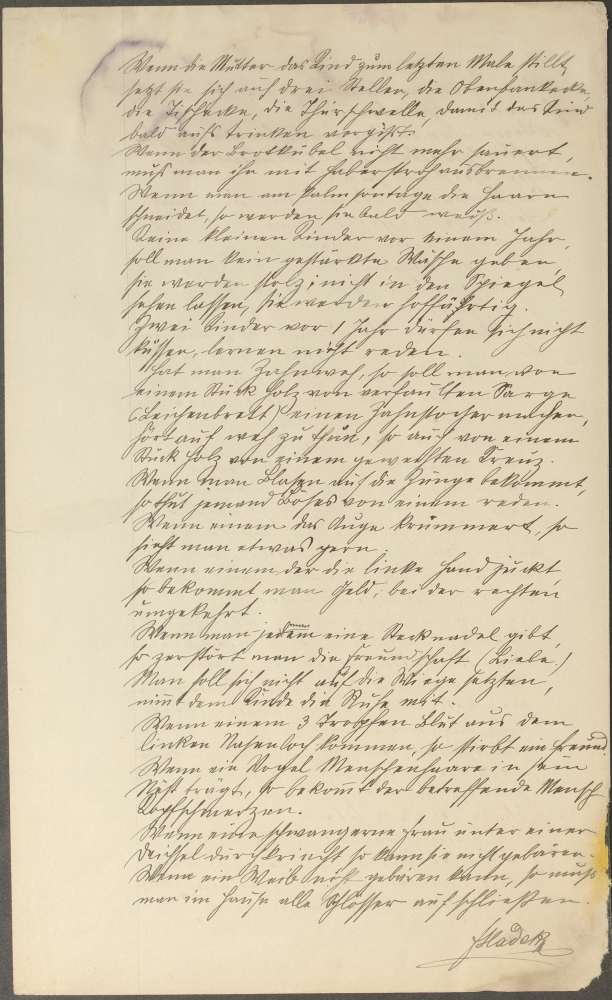 Wenn die Mutter das Kind zum letzten Male stillt,
setzt sie sich auf drei Stellen, die Ofenbankecke,
die Tischecke, die Thürschwelle, damit das Kind
bald aufs trinken vergißt.
Wenn der Brotkübel nicht mehr säuert,
muß man ihn mit Haberstroh ausbrennen.
Wenn man am Palmsontage die Haare
schneidet, so werden sie bald weiß.
Keine kleinen Kinder vor einem Jahr,
soll man kein gestärkte Wäsche geben,
sie werden stolz; nicht in den Spiegel
sehen lassen, sie werden hoffährtig.
Zwei Kinder vor 1 Jahr dürfen sich nicht
küssen, lernen nicht reden.
Hat man Zahnweh, so soll man von
einem Stück Holz von verfaulten Sarge
(Leichenbrett) einen Zahnstocher machen,
hört auf weh zu thun, so auch von einem
Stück Holz von einem geweihten Kreuz.
Wenn man Blasen auf die Zunge bekommt,
so thut jemand Böses von einem reden.
Wenn einem das Auge krümmert, so
sieht man etwas gern.
Wenn einem der die linke Hand juckt
so bekommt man Geld, bei der rechten
umgekehrt.
Wenn man jedem eine Stecknadel gibt
so zerstört man die Freundschaft (Liebe)
Man soll sich nicht auf die Wiege setzten,
nimt dem Kinde die Ruhe mit.
Wenn einem 3 Tropfen Blut aus dem
linken Nasenloch kommen, so stirbt ein Freund.
Wenn ein Vogel Menschenhaare in sein
Nest trägt, so bekomt der betreffende Mensch
Kopfschmerzen.
Wenn eine schwangerne Frau unter einer
Deichsel durchkriecht so kann sie nicht gebären.
Wenn ein Weib nicht gebären kann, so muß
man im Hause alle Schlösser aufschließen.